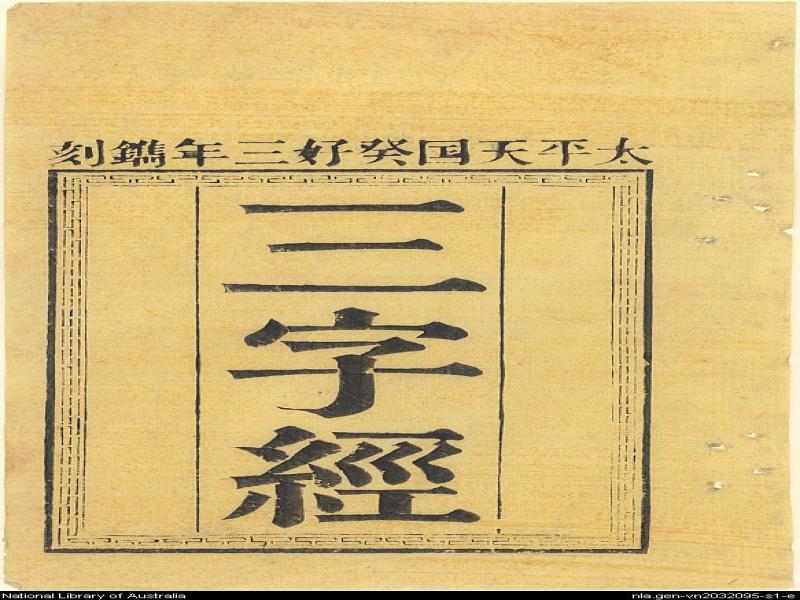 太平天囯癸好三年鐫刻
三字經
National Library of Australia
nla.gen-vn2032095-s1-e